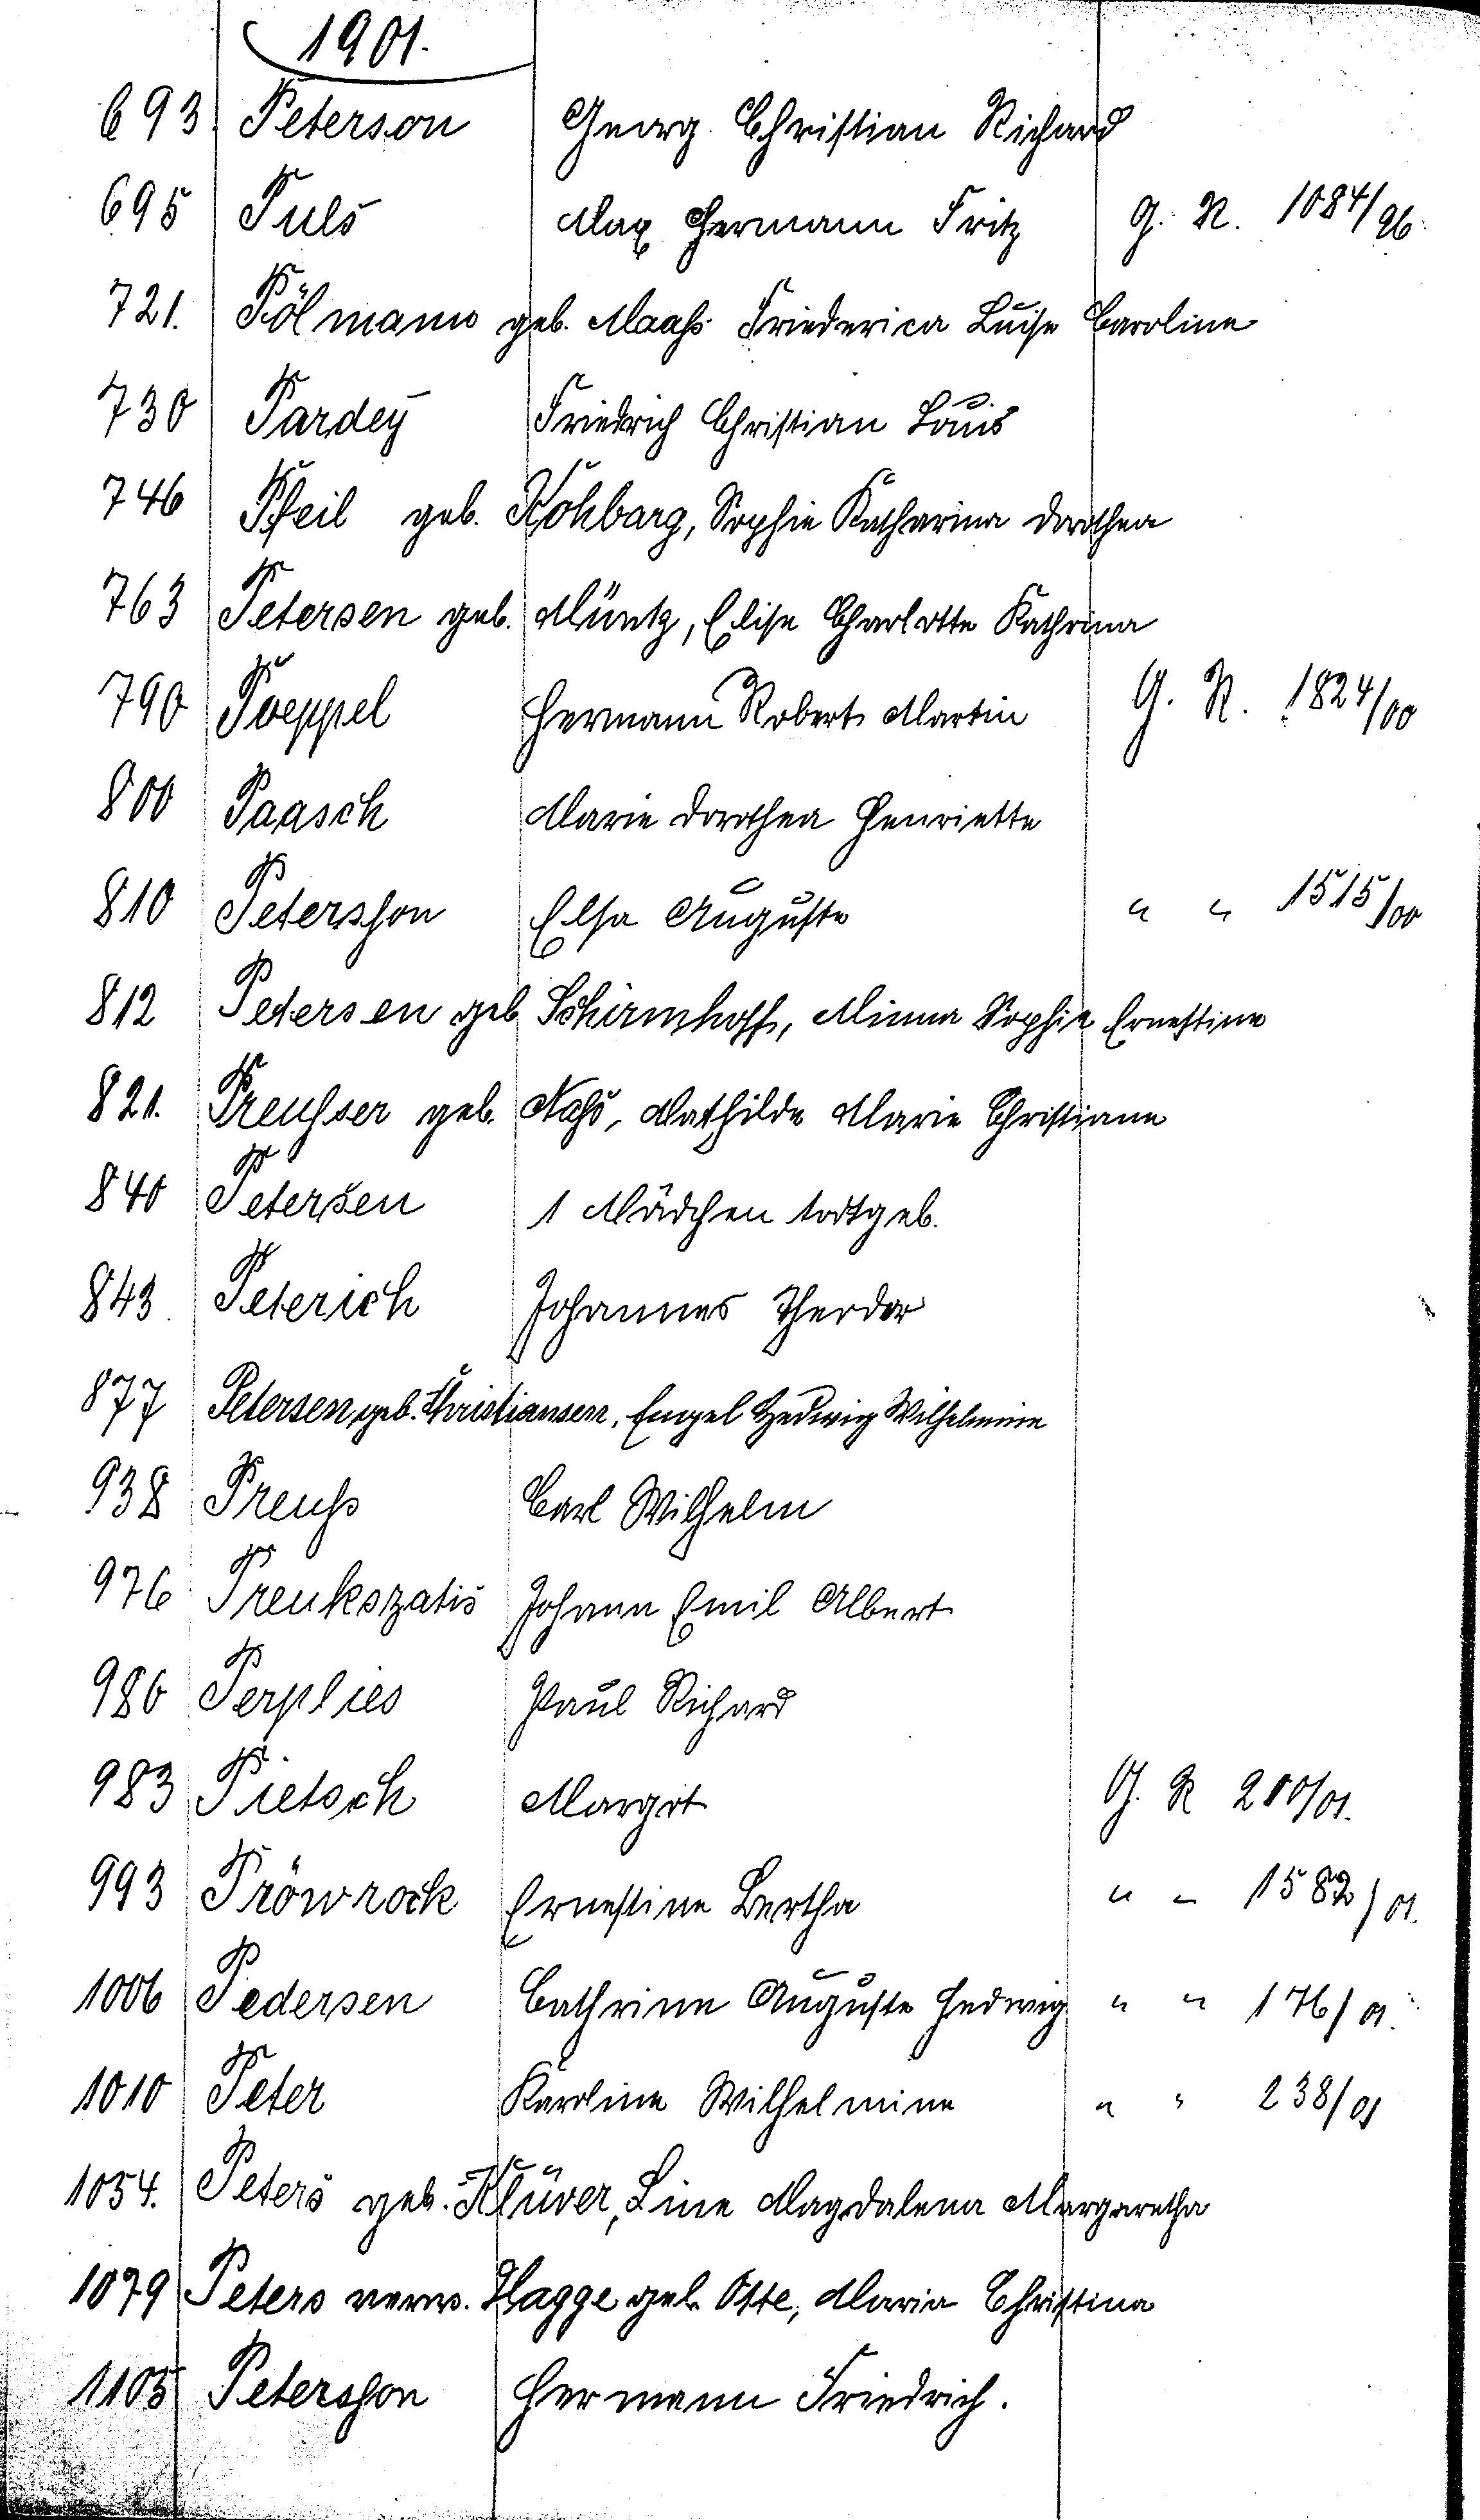 1901.
693 Peterson Georg Christian Richard
695 Puls Max Hermann Fritz G. R. 1084/96.
721. Pölmann geb. Maaß Friederica Luise Caroline
730 Pardey Friedrich Christian Louis
746 Pfeil geb. Kohbarg, Sophie Katharina Dorothea
763 Petersen geb. Müntz, Elise Charlotte Kathrina
790 Poeppel Hermann Robert Martin G. R. 1824/00
800 Paasch Marie Dorothea Henriette
810 Petersson Elsa Auguste " " 1515/00
812 Petersen geb Schirmhoff, Minna Sophie Ernestine
821. Preusser geb. Nass, Mathilde Marie Christiane
840 Petersen 1 Mädchen todtgeb.
843. Peterich Johannes Theodor
877 Petersen geb. Christiansen, Engel Hedwig Wilhelmine
938 Preuß Carl Wilhelm
976 Preukszatis Johann Emil Albert
980 Perplies Paul Richard
983 Pietsch Margot G. R 200/01.
993 Pröwrock Ernestine Bertha " " 1582/01.
1006 Pedersen Cathrine Auguste Hedwig " " 176/01.
1010 Peter Karoline Wilhelmine " " 238/01
1054. Peters geb. Klüver, Line Magdalena Margaretha
1079 Peters verw. Hagge geb. Otte, Maria Christina
1105 Petersson Hermann Friedrich.